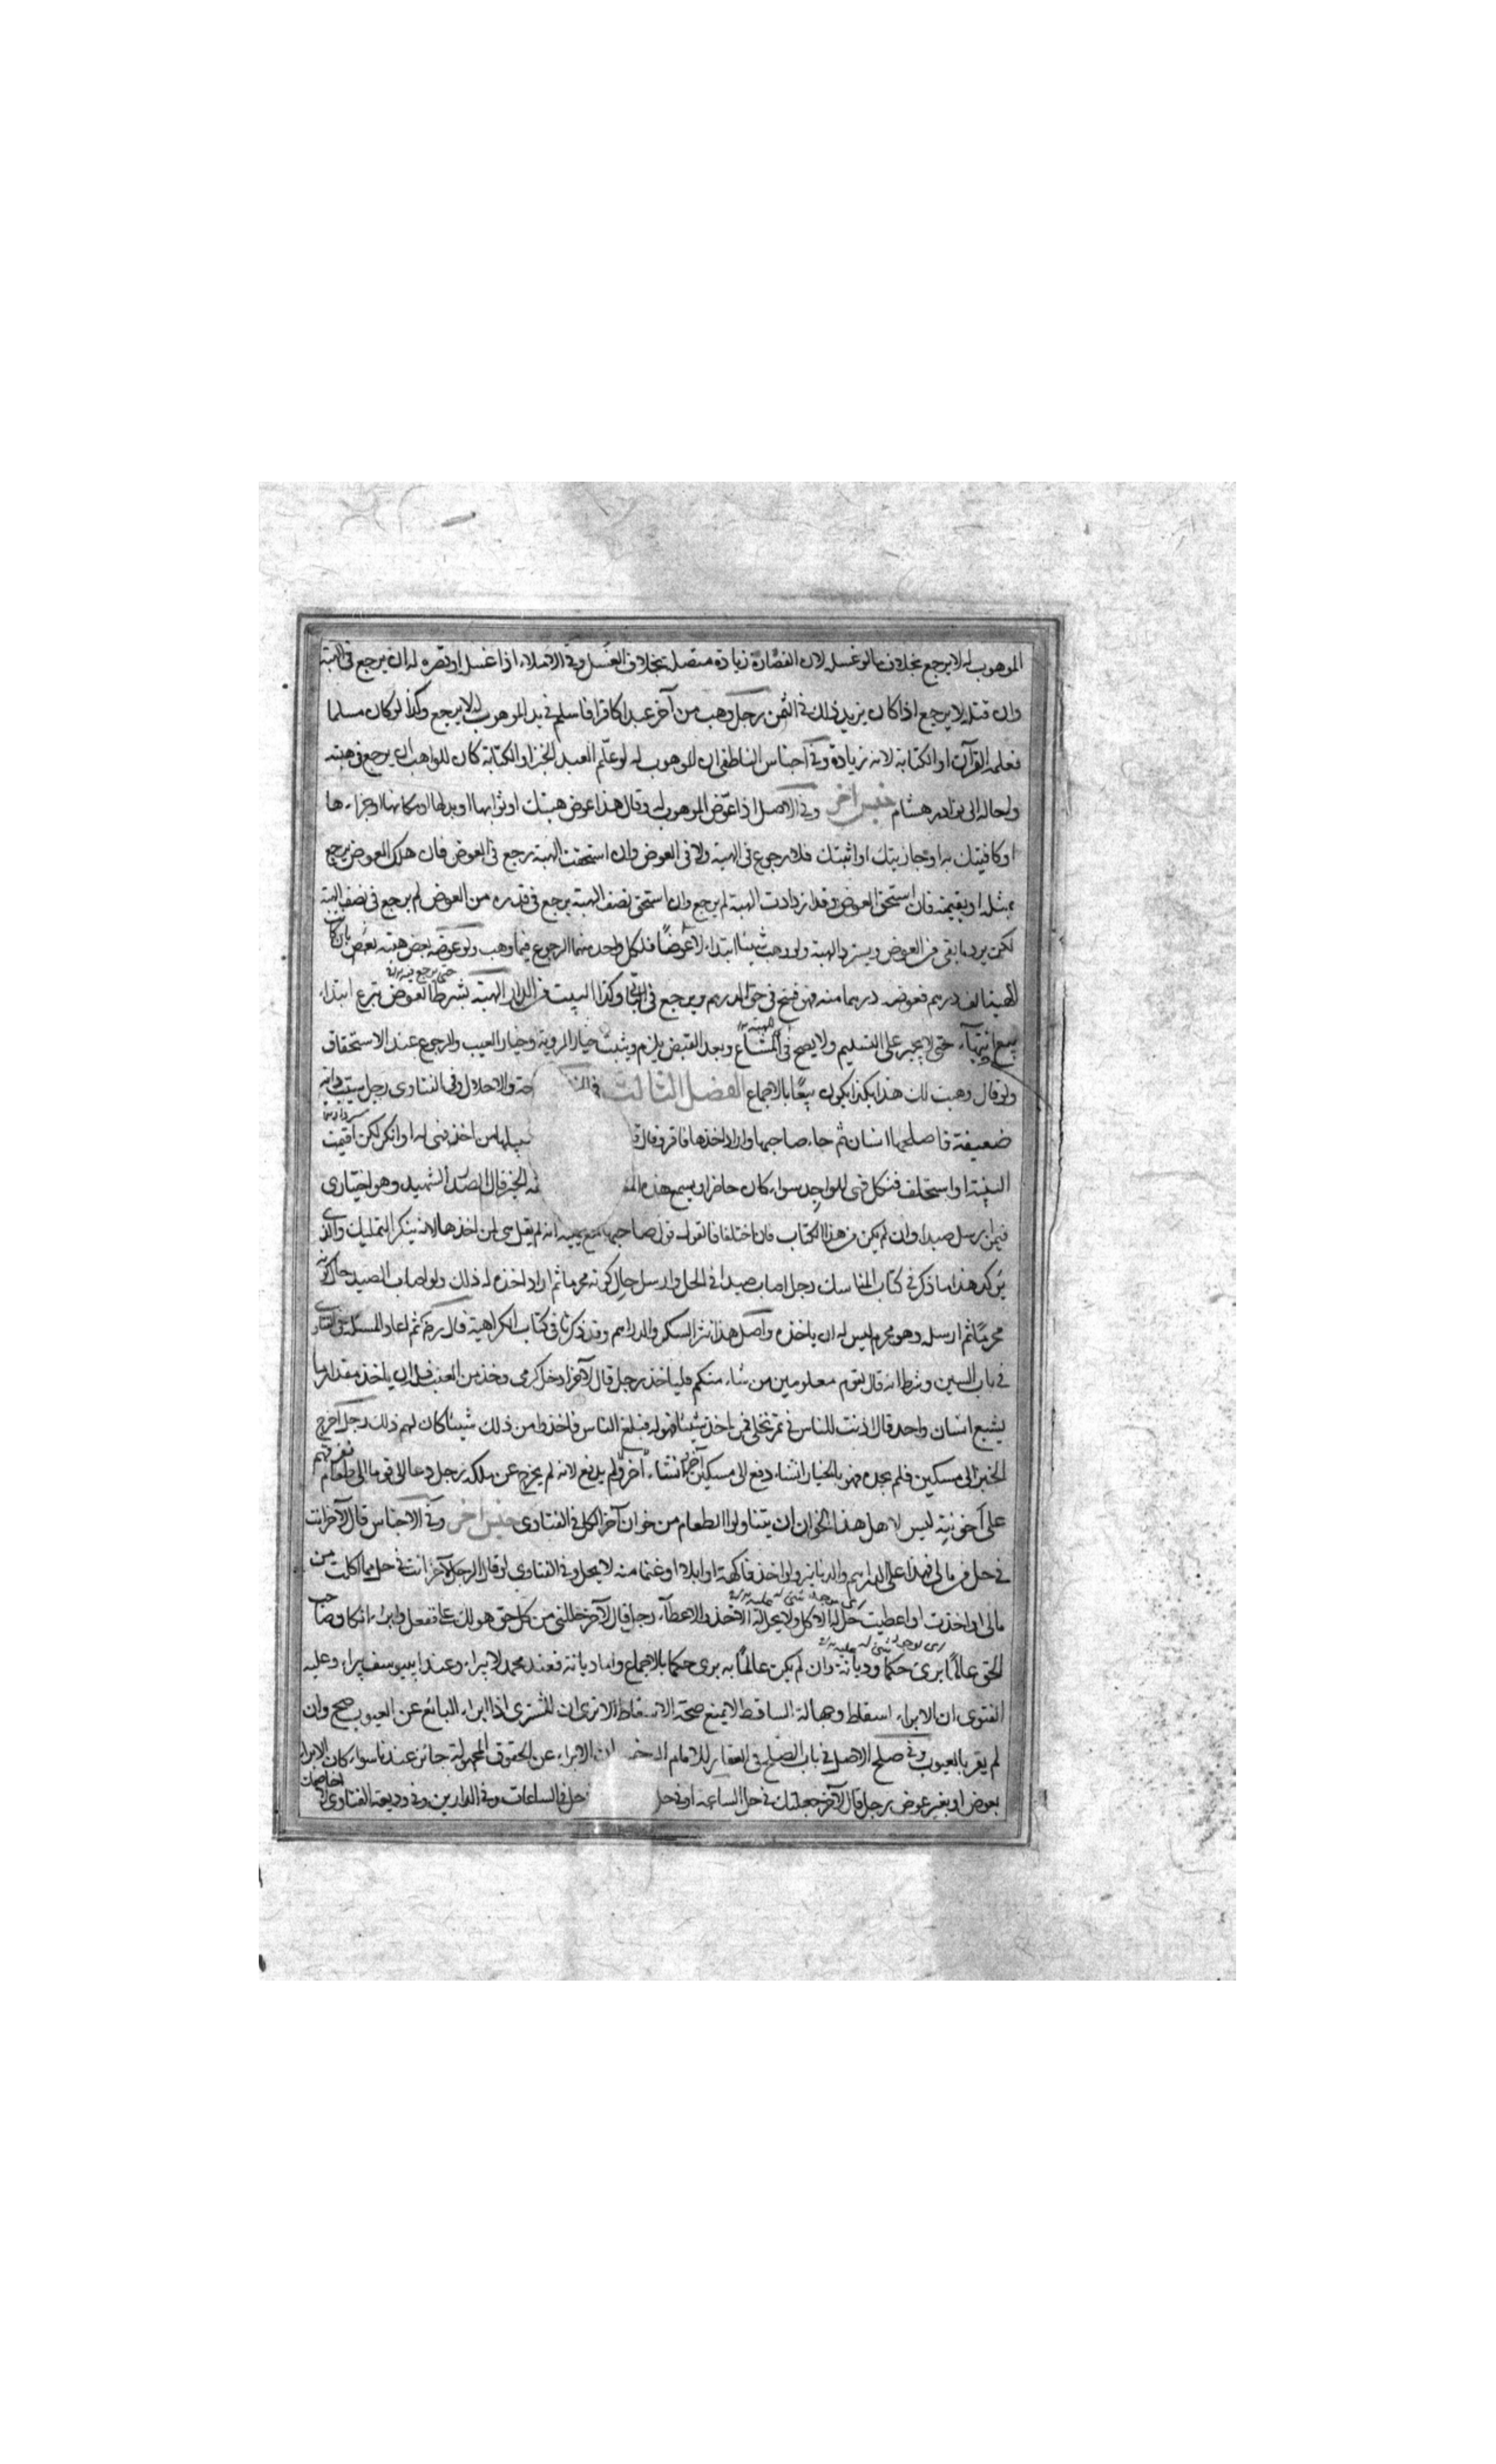 الموهوب له لا يرجع بخلاف ما لو غسله لان القصارة زيادة متصلة بخلاف الغسل وفي الاملاء اذا غسل او قصره له ان يرجع في الهبة
وان قتله لا يرجع اذا كان يزيد ذلك في الثمن رجل وهب من آخر عبدا كافرا فاسلم في يد الموهوب له لا يرجع وكذا لو كان مسلما
فعلمه القرآن او الكتابة لانه زيادة وفي اجناس الناطفي ان الموهوب له لو علّم العبد الخبز او الكتابة كان للواهب ان يرجع في هبته
واحاله الى نوادر هشام جنس آخر وفي الاصل اذا عوّض الموهوب له وقال هذا عوض هبتك او ثوابها او بدلها او مكانها او جزاءها
او كافيتك به او جازيتك او اثبتك فلا رجوع في الهبة ولا في العوض وان استحقت الهبة رجع في العوض فان هلك العوض يرجع
بمثله او بقيمته فان استحق العوض وقد ازدادت الهبة لم يرجع وان استحق نصف الهبة يرجع في قدره من العوض لم يرجع في نصف الهبة
لكن يرد ما بقي من العوض ويسترد الهبة ولو وهب شيئا ابتداء لا عوضًا فلكل واحد منهما الرجوع فيما وهب ولو عوضه بعض هبته بعض بان كان
الهبة الف درهم فعوضه درهما منه فهو فسخ في حق الدرهم ويرجع في الباقي وكذا البيت من الدار الهبة بشرط العوض تبرع ابتداء
بيع انتهاء حتى لا يجبر على التسليم ولا يصح في المشاع وبعد القبض يلزم ويثبت خيار الروية وخيار العيب والرجوع عند الاستحقاق
ولو قال وهبت لك هذا بكذا يكون بيعًا بالاجماع الفصل الثالث في حة والاحلال وفي الفتاوى رجل سيب دابته
ضعيفة فاصلحها انسان ثم جاء صاحبها واراد اخذها فاقر وقال من اخذ فهي له او انكر لكن اقيمت
البينة او استحلف فنكل فهي للواجد سواء كان حاضرا يسمع هذه الخبر قال الصدر الشهيد وهو اختياري
فيمن ارسل صيدا وان لم يكن في هذا الكتاب فان اختلفا فالقول قول صاحبها مع يمينه انه لم يقل هي لمن اخذها لانه ينكر التمليك والذي
يؤكد هذا ما ذكر في كتاب المناسك رجل اصاب صيدا في الحل وارسل حال كونه محرما ثم اراد اخذه له ذلك ولو اصاب الصيد حال كونه
محرمًا ثم ارسله وهو محرم ليس له ان ياخذه واصل هذا نثر السكر والدراهم وقد ذكرنا في كتاب الكراهية قال ثم اعاد المسئلة في
في باب السين وشرط انه قال لقوم معلومين من شاء منكم فلياخذ رجل قال لآخر ادخل كرمي وخذ من العنب فله ان ياخذ مقدار ما
يشبع انسان واحد قال اذنت للناس في تمر نخلي فمن اخذ شيئا فهو له فبلغ الناس فاخذوا من ذلك شيئا كان لهم ذلك رجل اخرج
الخبز الى مسكين فلم يجده فهو بالخيار ان شاء دفع الى مسكين آخر وان شاء لم يدفع لانه لم يخرج عن ملكه رجل دعا قوما الى طعام وفرقهم
على اخونية ليس لاهل هذا الخوان ان يتناولوا الطعام من خوان آخر الكل في الفتاوى جنس آخر وفي الاجناس قال لآخر انت
في حل من مالي فهذا على الدراهم والدنانير ولو اخذ فاكهة او ابلا او غنما منه لا يحل وفي الفتاوى لو قال الرجل لآخر انت في حل مما اكلت من
مالي او اخذت او اعطيت حل له الاكل ولا يحل له الاخذ والاعطاء رجل قال لآخر حللني من كل حق هو لك علي ففعل وابراه ان كان صاحب
الحق عالمًا برئ حكما وديانة وان لم يكن عالمًا به برئ حكما بالاجماع واما ديانة فعند محمد لا يبراء وعند ابي يوسف يبراء وعليه
الفتوى ان الابراء اسقاط وجهالة الساقط لا تمنع صحة الاسقاط الا ترى ان المشترى اذا ابراء البائع عن العيوب صح وان
لم يقر بالعيوب وفي صلح الاصل في باب الصلح في العقار للامام ان الابراء عن الحقوق المجهولة جائز عندنا سواء كان الابراء
بعوض او بغير عوض رجل قال لآخر جعلتك في حل الساعة او في حل الساعات وفي الدارين وفي وديعة الفتاوى